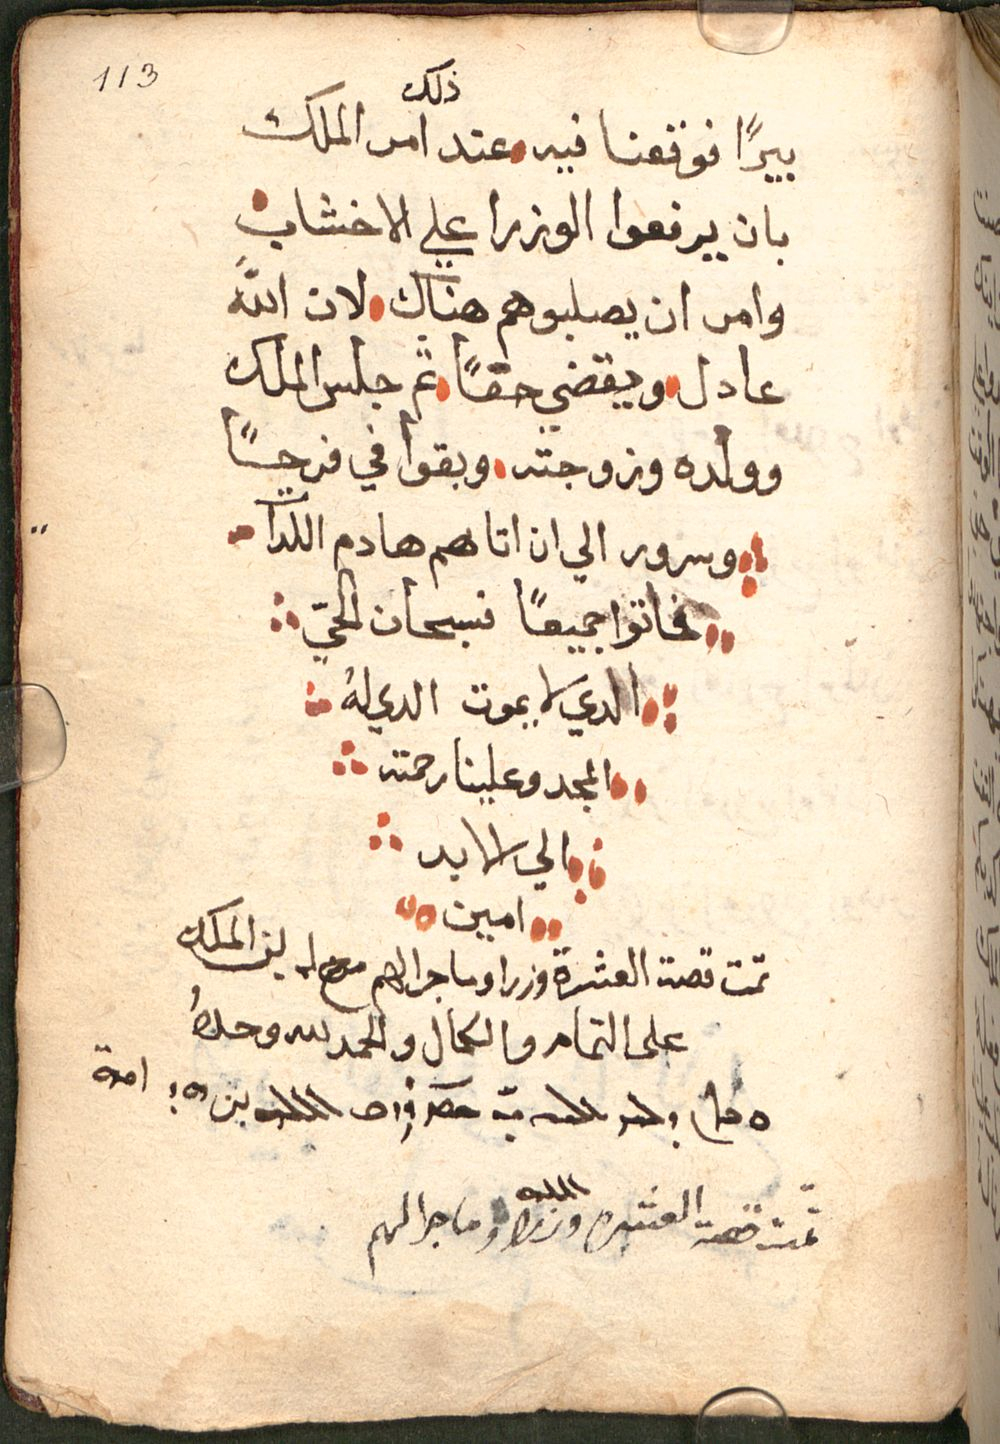 113
ذلك
بيرًا فوقعنا فيه. عند امر الملك
بان يرفعوا الوزرا علي الاخشاب
وامر ان يصلبوهم هناك. لان الله
عادل. ويقضي حقًا. ثم جلس الملك
وولده وزوجته. وبقوا في فرحًا
وسرور الي ان اتاهم هادم اللدا
فماتوا جميعًا فسبحان الحيّ
الدي لا يموت الدي لهُ
المجد وعلينا رحمته
الي الابد
امين
تمت قصة العشرة وزرا وما جرا لهم مع ابن الملك
على التمام والكمال والحمد لله وحدهُ
تمت قصة العشره وزرا وما جرا لهم